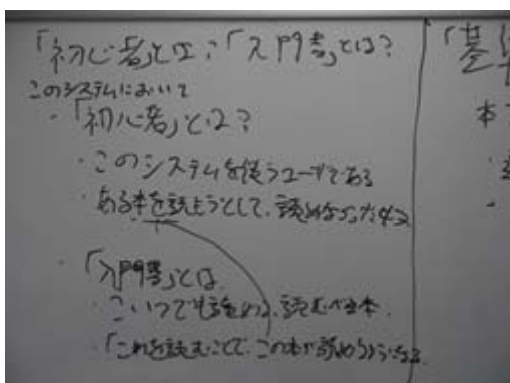 「初心者」とは?「入門書」とは?
このシステムにおいて
・「初心者」とは?
・このシステムを使うユーザである
・ある本を読もうとして、読めなかった
・「入門書」とは
・こいつでも読める、読むべき本
・「これを読むことで、この本が読めるようになる
「基
本